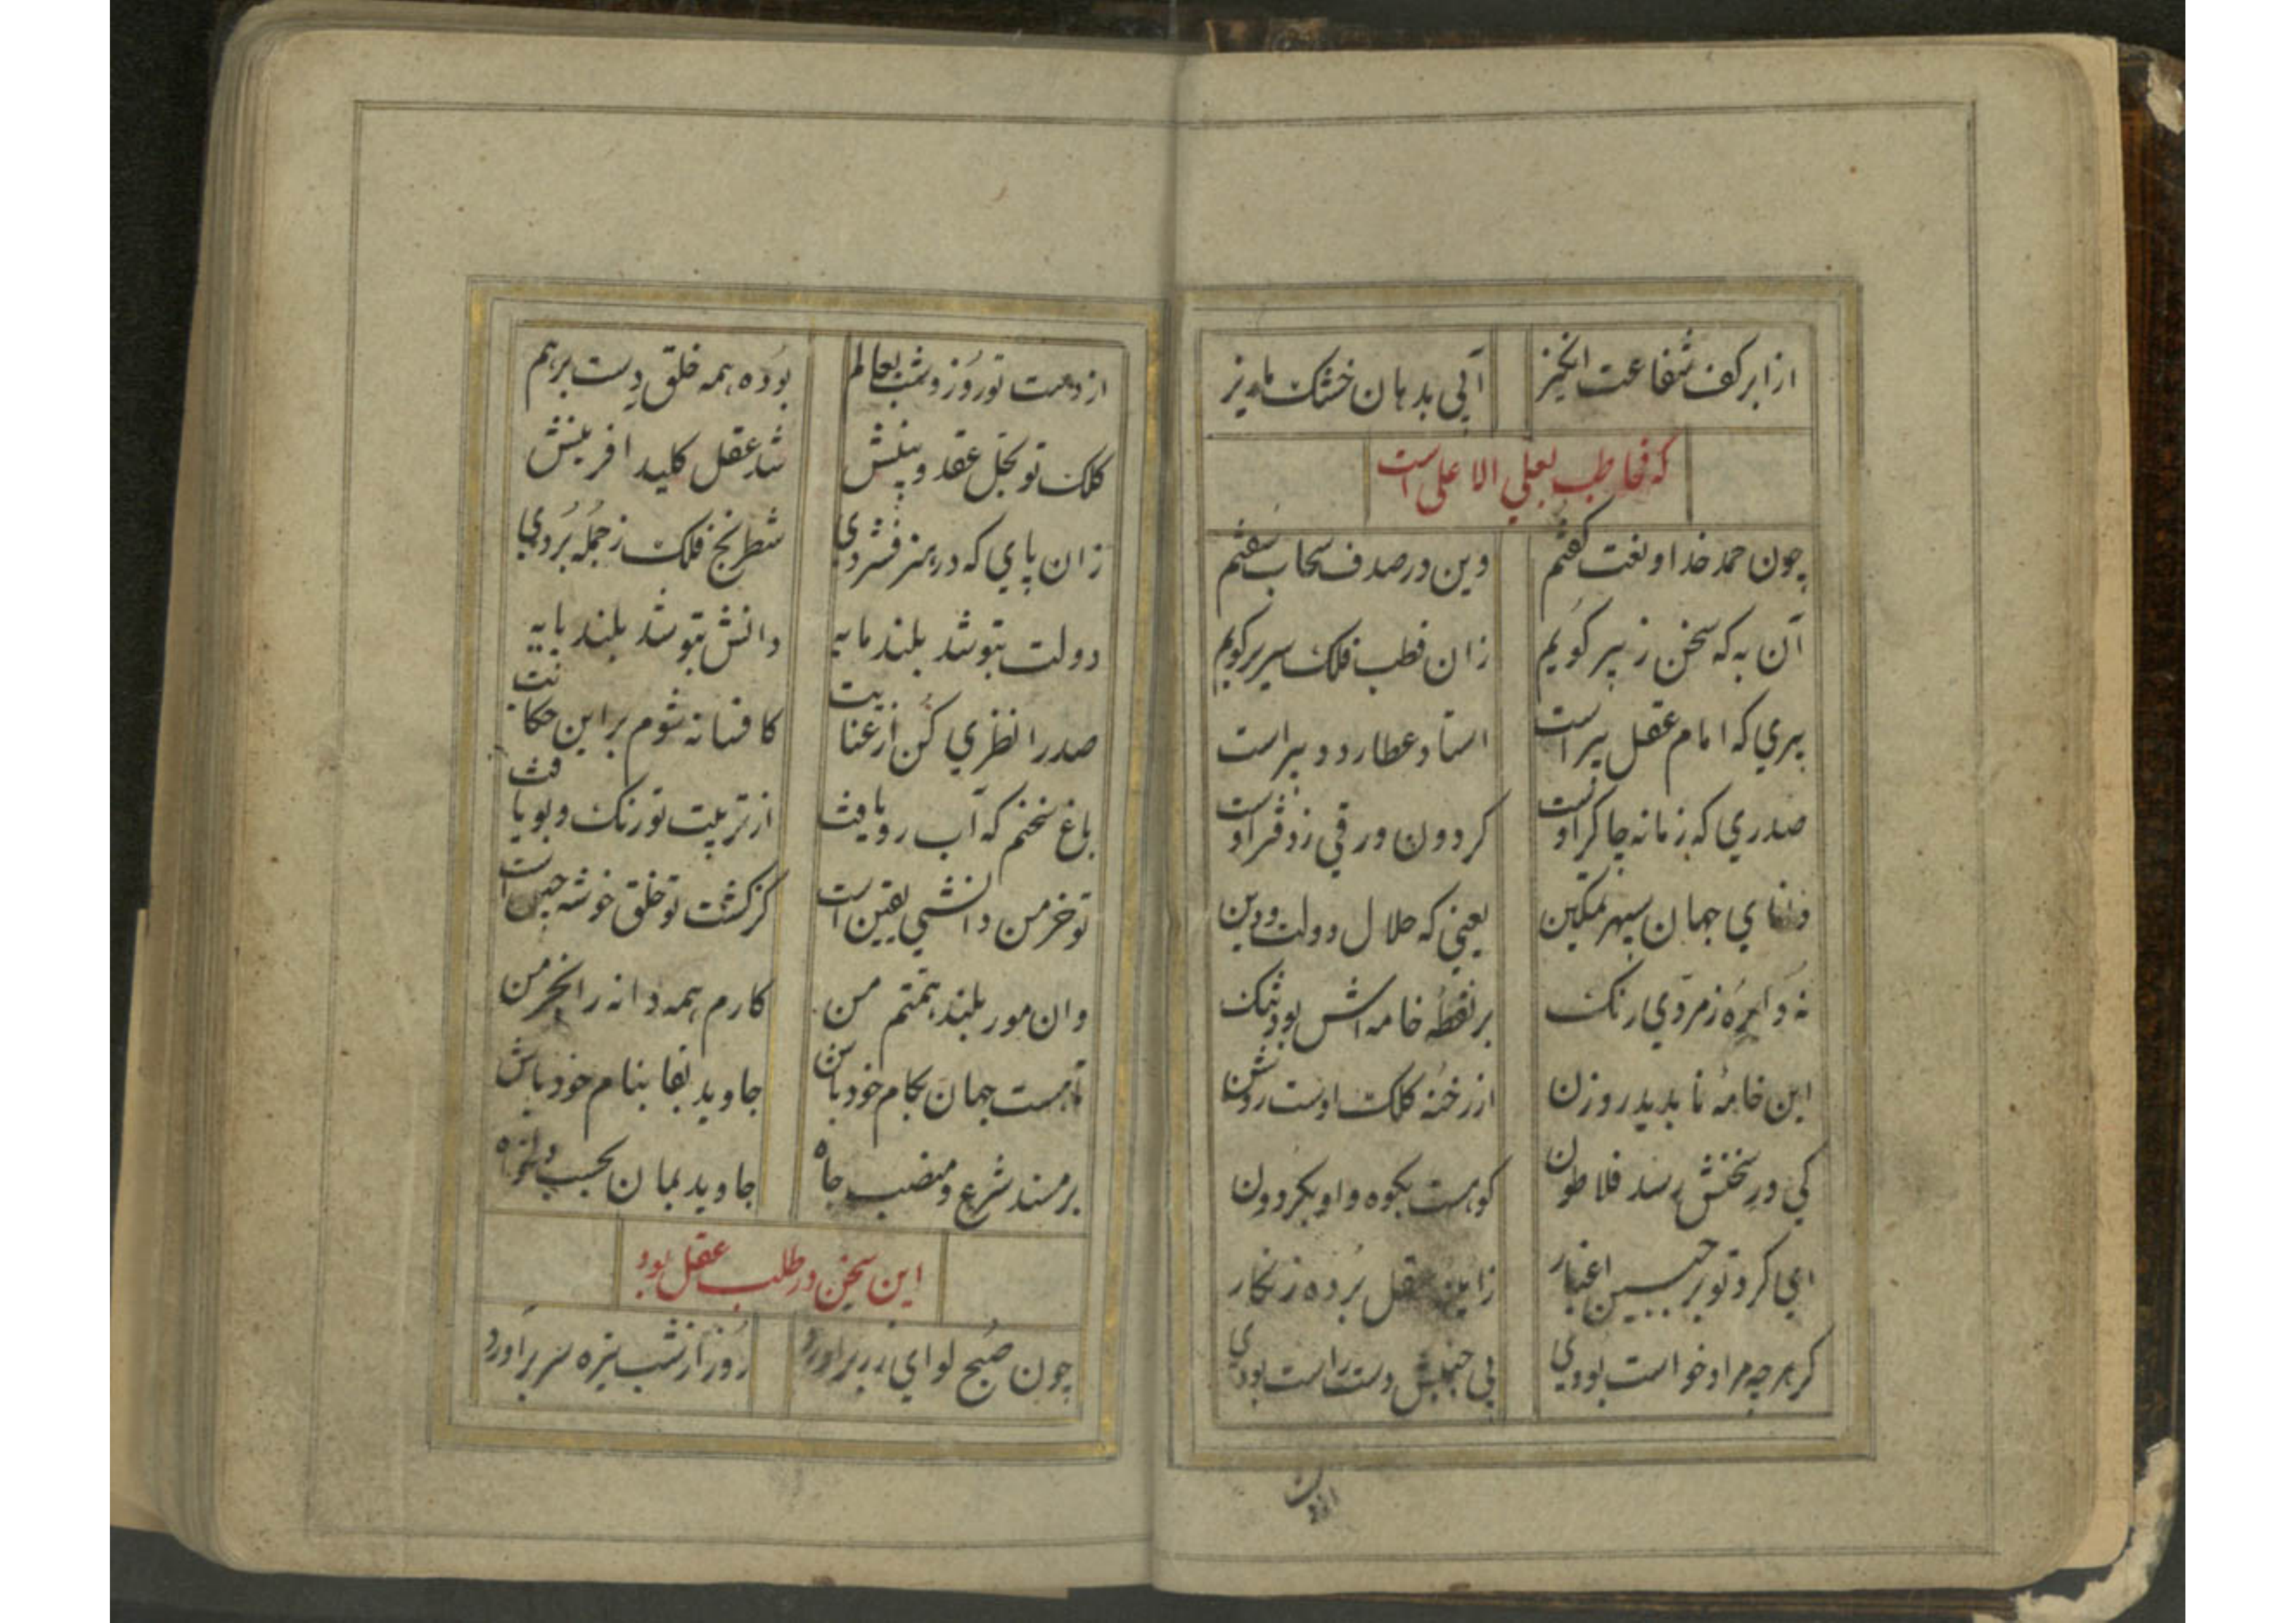 از ابر کف شفاعت انگیز آبی بدهان خشک ما ریز
که مخاطب بعلی الاعلی است
چون حمد خدا و نعت گفتم وین در صدف سحاب سفتم
آن به که سخن ز پیر گویم زان قطب فلک سریر گویم
پیری که امام عقل پیر است استاد عطارد دبیر است
صدری که زمانه چاکر اوست کردون ورقی ز دفتر اوست
جهان سپهر تمکین یعنی که جلال دولت و دین
نه دایرهٔ زمردی رنک بر نقطهٔ خامه اش بود تنک
این خامهٔ ناپدید روزن از رخنه کلک اوست روشن
کی در سخنش رسد فلاطون کو هست بکوه و او بکردون
ای کرد تو بر جبین اغیار زایینه عقل برده زنکار
کر هرچه مراد خواست بودی بی جنبش دست راست بودی
از دست
از دست تو روز و شب بعالم بوده همه خلق دست برهم
کلک تو بحل عقد و بینش شد عقل کلید افرینش
زان پای که در هنر فشردی شطرنج فلک ز جمله بردی
دولت بتو شد بلند مایه دانش بتو شد بلند پایه
صدرا نظری کن از عنایت کافسانه شوم بر این حکایت
باغ سخنم که آب رو یافت از تربیت تو رنک و بو یافت
تو خرمن دانشی یقین است کز کشت تو خلق خوشه چین است
وان مور بلند همتم من کارم همه دانه را بخرمن
تا هست جهان بکام خود باش جاوید بقا بنام خود باش
بر مسند شرع و منصب جاه جاوید بمان بحسب دلخواه
این سخن در طلب عقل بود
چون صبح لوای زر براورد روز از شب تیره سر براورد